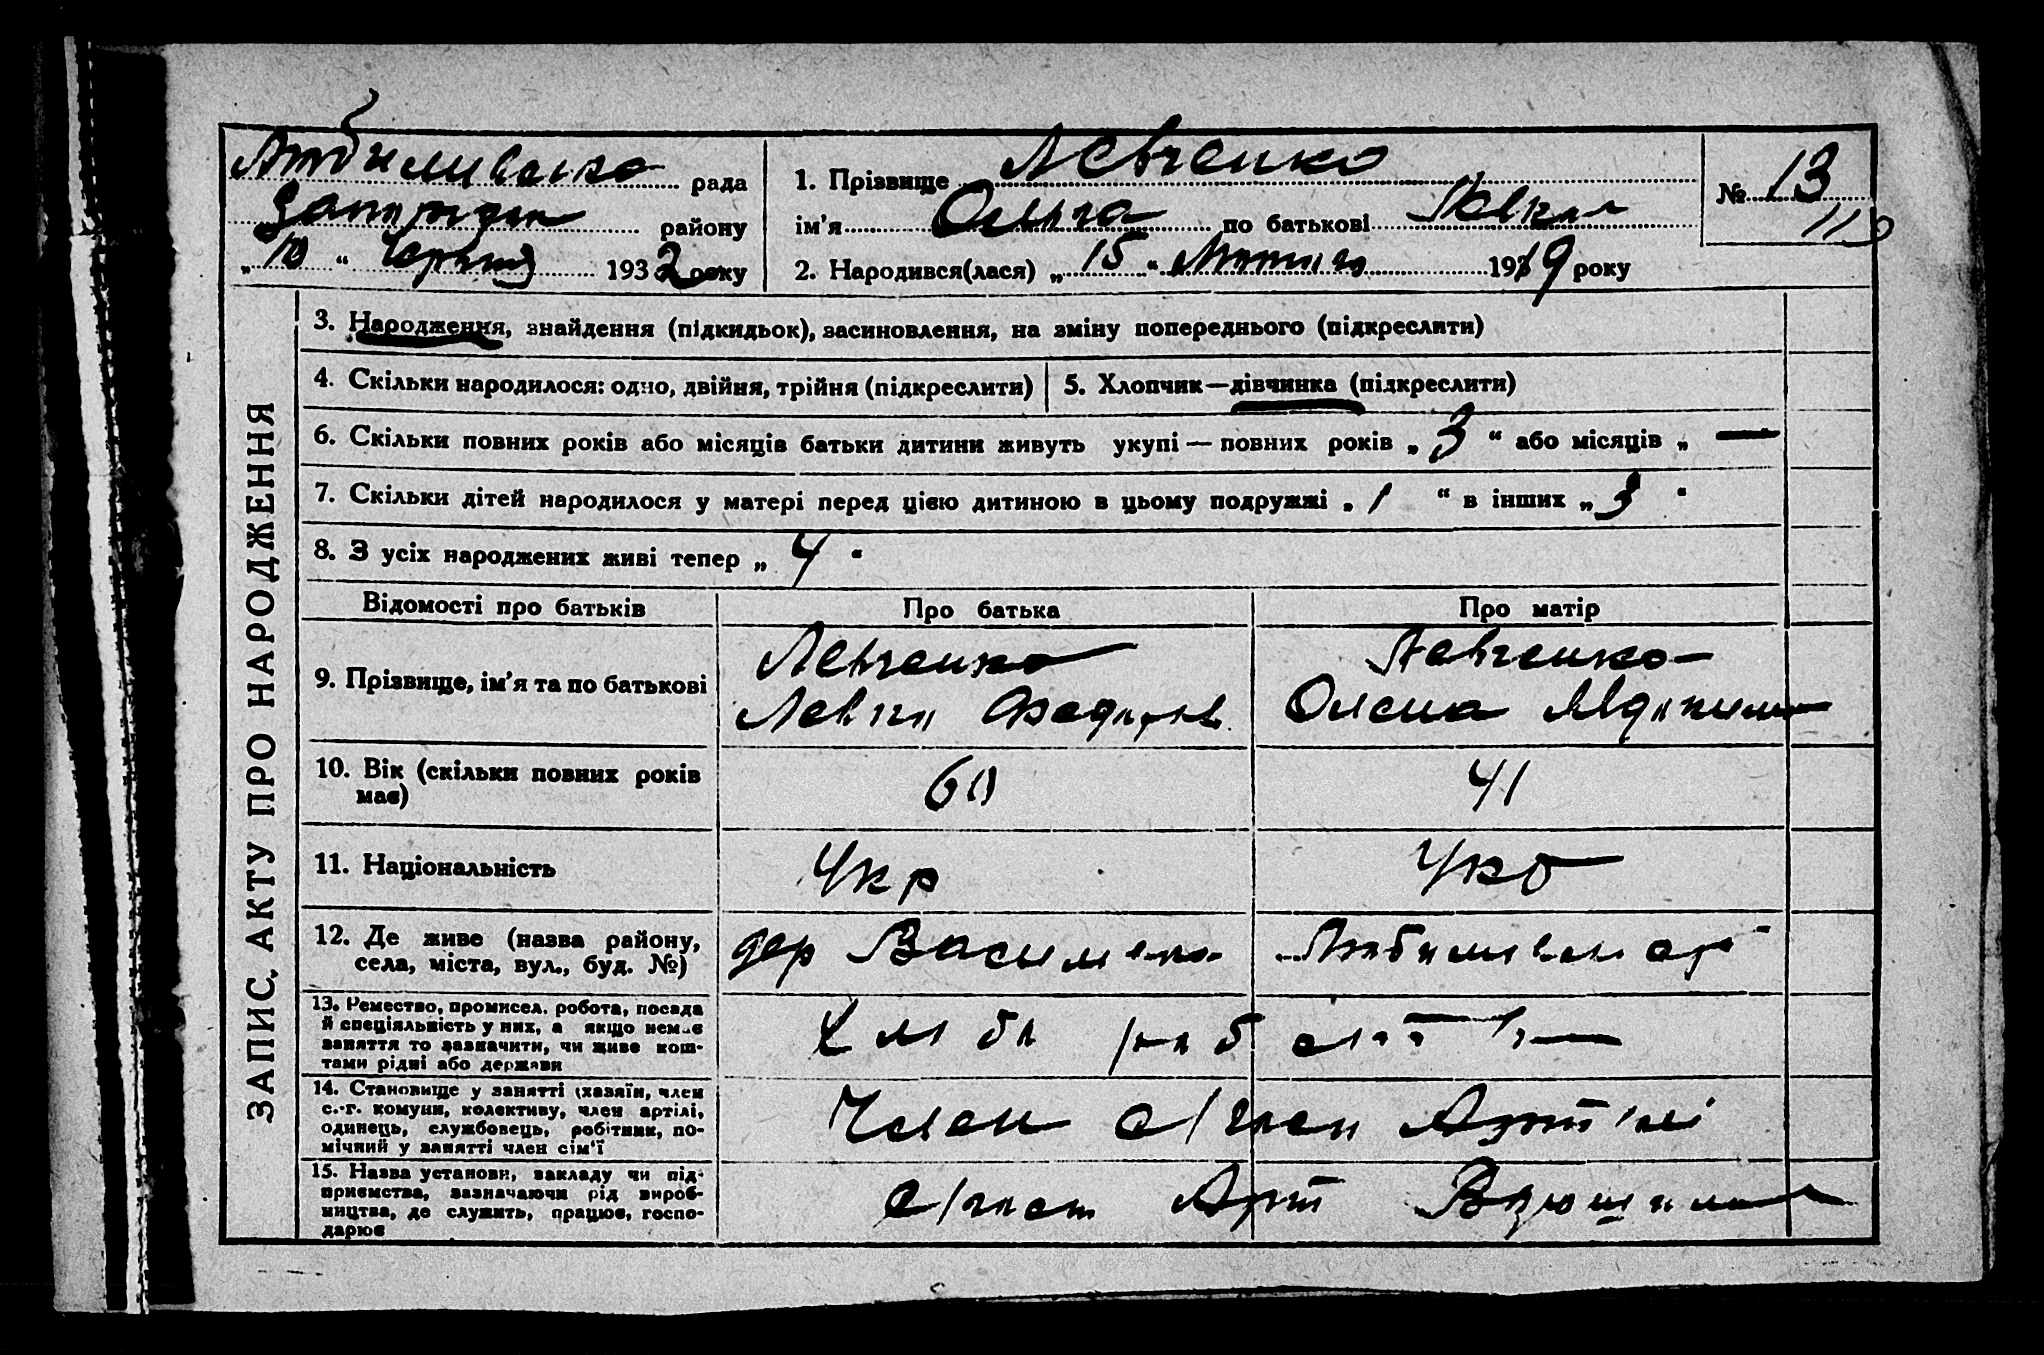 Любимівська рада
району
„10“ червня 1932 року
1. Прізвище Левченко
ім'я Ольга по батькові Левкова
2. Народився(лася) „15“ Лютого 1919 року
№ 13
ЗАПИС АКТУ ПРО НАРОДЖЕННЯ
3. Народження, знайдення (підкидьок), засиновлення, на зміну попереднього (підкреслити)
4. Скільки народилося: одно, двійня, трійня (підкреслити)
5. Хлопчик—дівчинка (підкреслити)
6. Скільки повних років або місяців батьки дитини живуть укупі — повних років „3“ або місяців „—
7. Скільки дітей народилося у матері перед цією дитиною в цьому подружжі „1“ в інших „3“
8. З усіх народжених живі тепер „4“
Відомості про батьків
Про батька
Про матір
9. Прізвище, ім'я та по батькові
Левченко
Левко Федоров
Левченко
Олена
10. Вік (скільки повних років
має)
60
41
11. Національність
Укр
Укр
12. Де живе (назва району,
села, міста, вул., буд. №)
13. Ремество, промисел, робота, посада
й спеціяльність у них, а якщо немає
заняття то зазначити, чи живе кош-
тами рідні або держави
Хлібороб
14. Становище у занятті (хазяїн, член
с.-г. комуни, колективу, член артілі,
одинець, службовець, робітник, по-
мічний у занятті член сім'ї
Член Артілі
15. Назва установи, закладу чи під-
приємства, зазначаючи рід вироб-
ництва, де служить, працює, госпо-
дарює
Арт